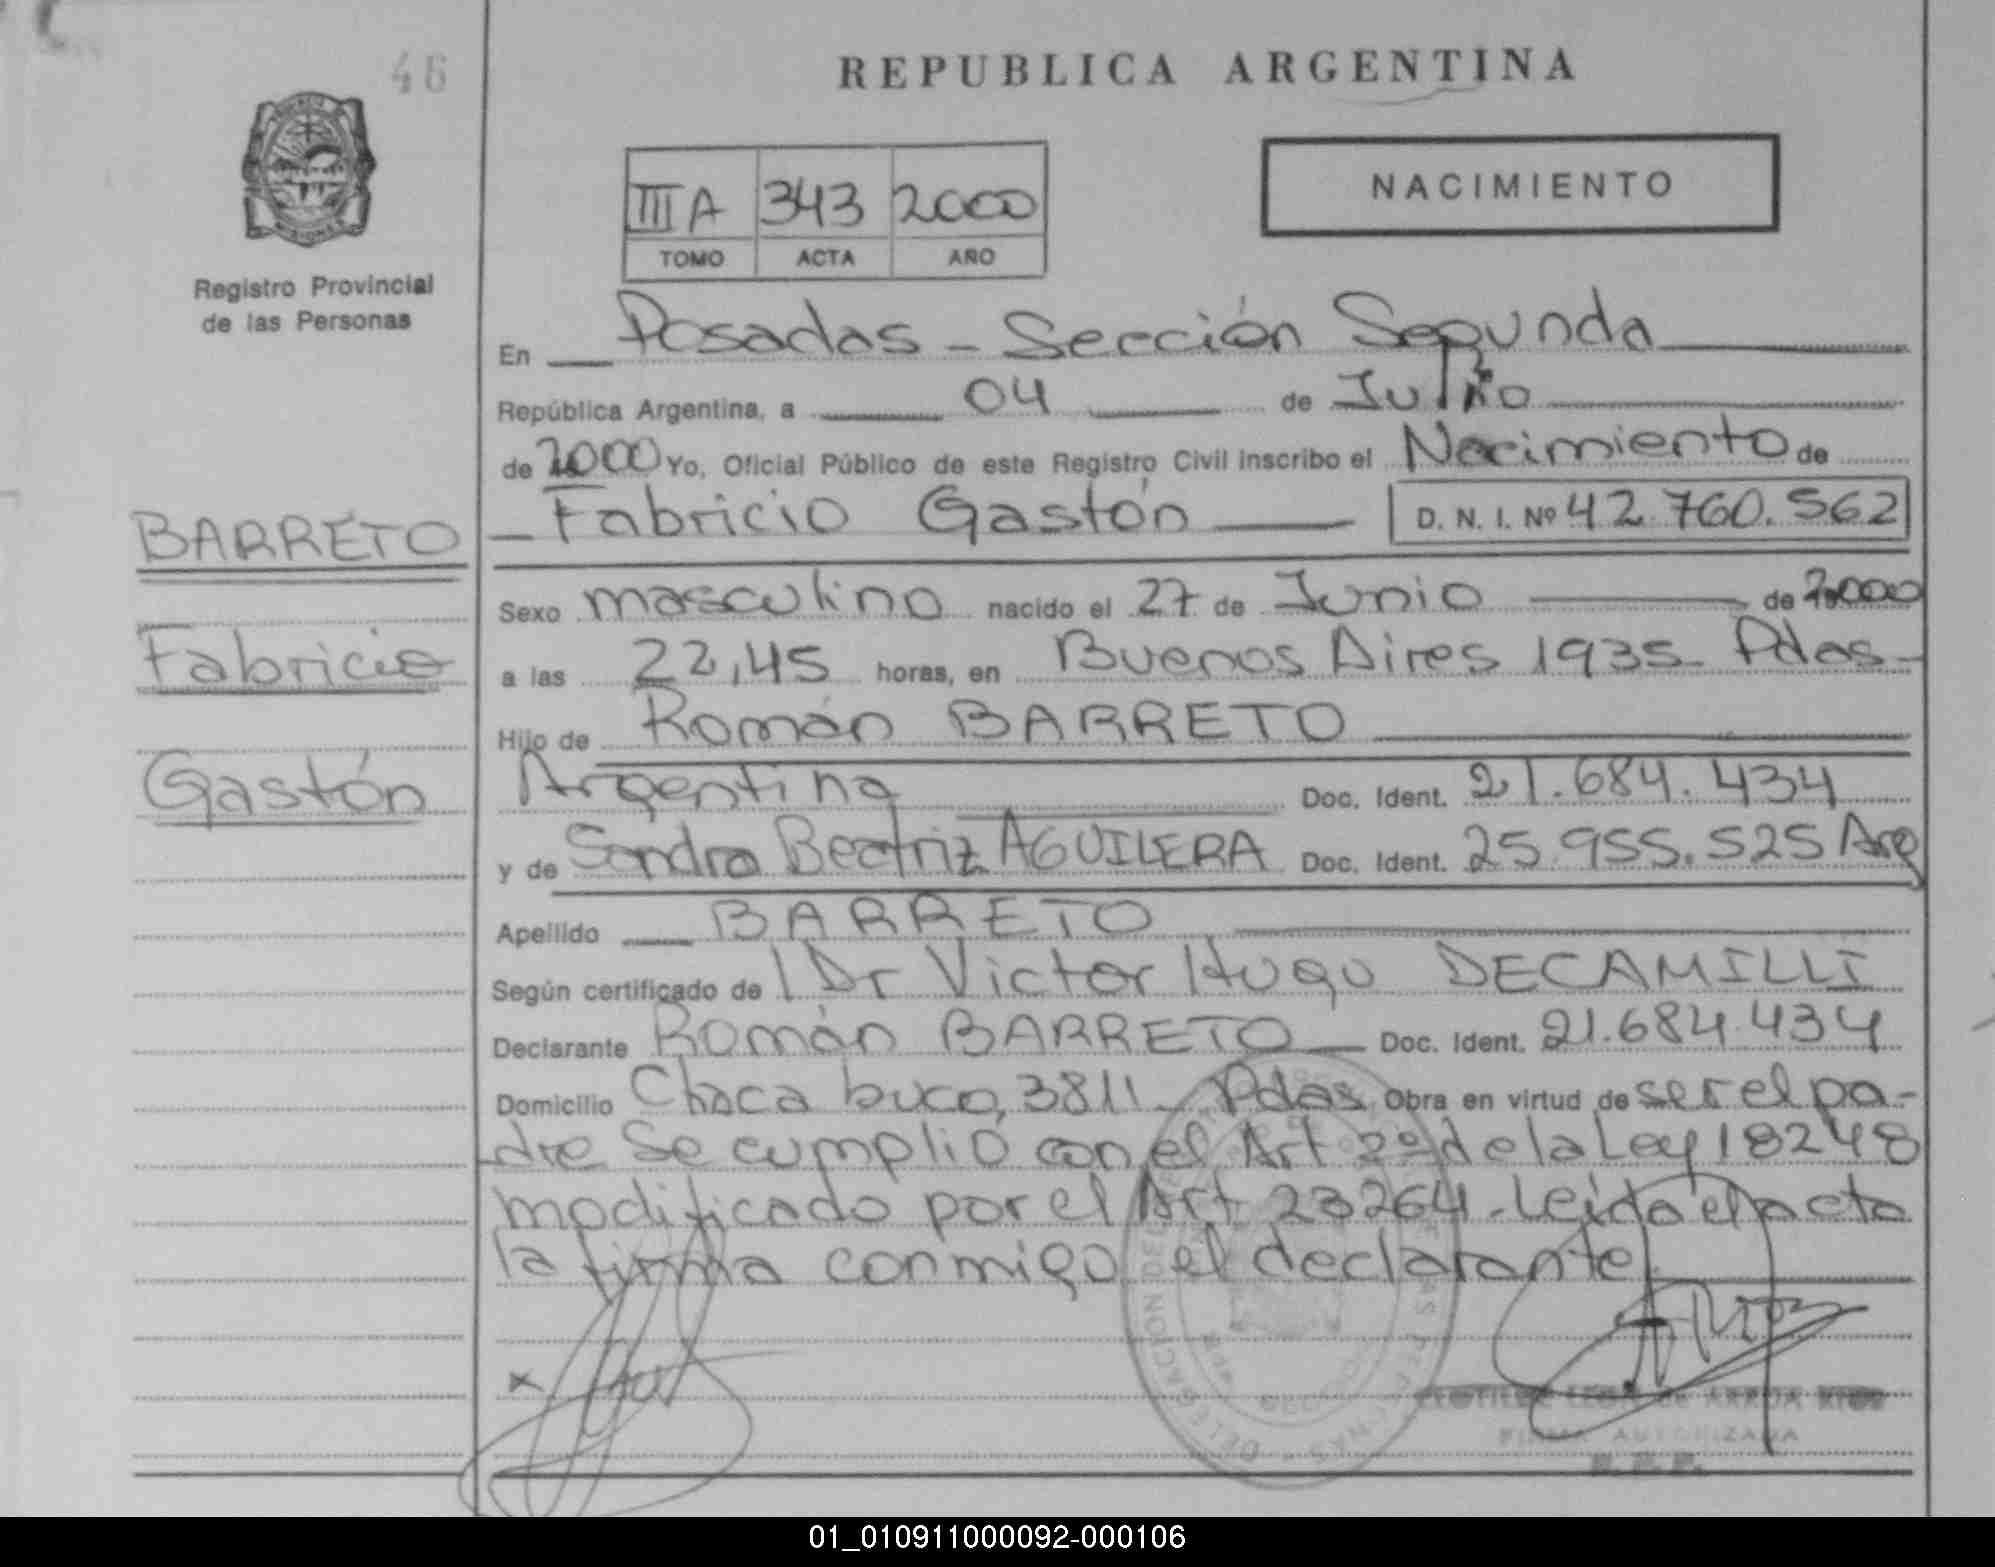 46
REPUBLICA ARGENTINA
III A 343 2000
TOMO ACTA AÑO
NACIMIENTO
MISIONES
Registro Provincial
de las Personas
En Posadas - Sección Segunda
República Argentina, a 04 de Julio
de 2000 Yo, Oficial Público de este Registro Civil inscribo el Nacimiento de
Fabricio Gastón D. N. I. Nº 42.760.562
BARRETO
Fabricio
Gastón
Sexo masculino nacido el 27 de Junio de 2000
a las 22,45 horas, en Buenos Aires 1935 - Pdas -
Hijo de Román BARRETO
Argentina Doc. Ident. 21.684.434
y de Sandra Beatriz AGUILERA Doc. Ident. 25.955.525 Arg
Apellido BARRETO
Según certificado de l Dr Victor Hugo DECAMILLI
Declarante Román BARRETO Doc. Ident. 21.684.434
Domicilio Chacabuco, 3811 - Pdas Obra en virtud de ser el pa-
dre Se cumplió con el Art 2º de la Ley 18248
modificado por el Art 23264 - Leída el acta
la firma conmigo el declarante
x
CLOTILDE de ARRUA
FIRMA AUTORIZADA
R.P.P.
01_010911000092-000106